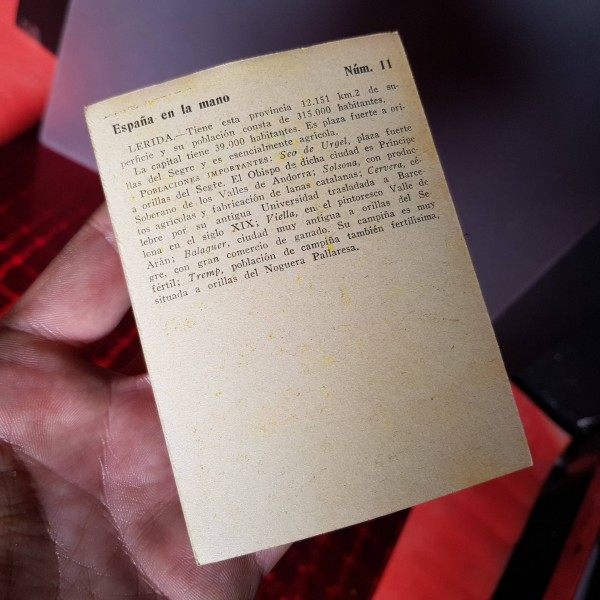 España en la mano
Núm. 11
LERIDA.—Tiene esta provincia 12.151 km.2 de su-
perficie y su población consta de 315.000 habitantes.
La capital tiene 39.000 habitantes. Es plaza fuerte a ori-
llas del Segre y es esencialmente agrícola.
POBLACIONES IMPORTANTES: Seo de Urgel, plaza fuerte
a orillas del Segre. El Obispo de dicha ciudad es Príncipe
Soberano de los Valles de Andorra; Solsona, con produc-
tos agrícolas y fabricación de lanas catalanas; Cervera, cé-
lebre por su antigua Universidad trasladada a Barce-
lona en el siglo XIX; Viella, en el pintoresco Valle de
Arán; Balaguer, ciudad muy antigua a orillas del Se-
gre, con gran comercio de ganado. Su campiña es muy
fértil; Tremp, población de campiña también fertilísima,
situada a orillas del Noguera Pallaresa.